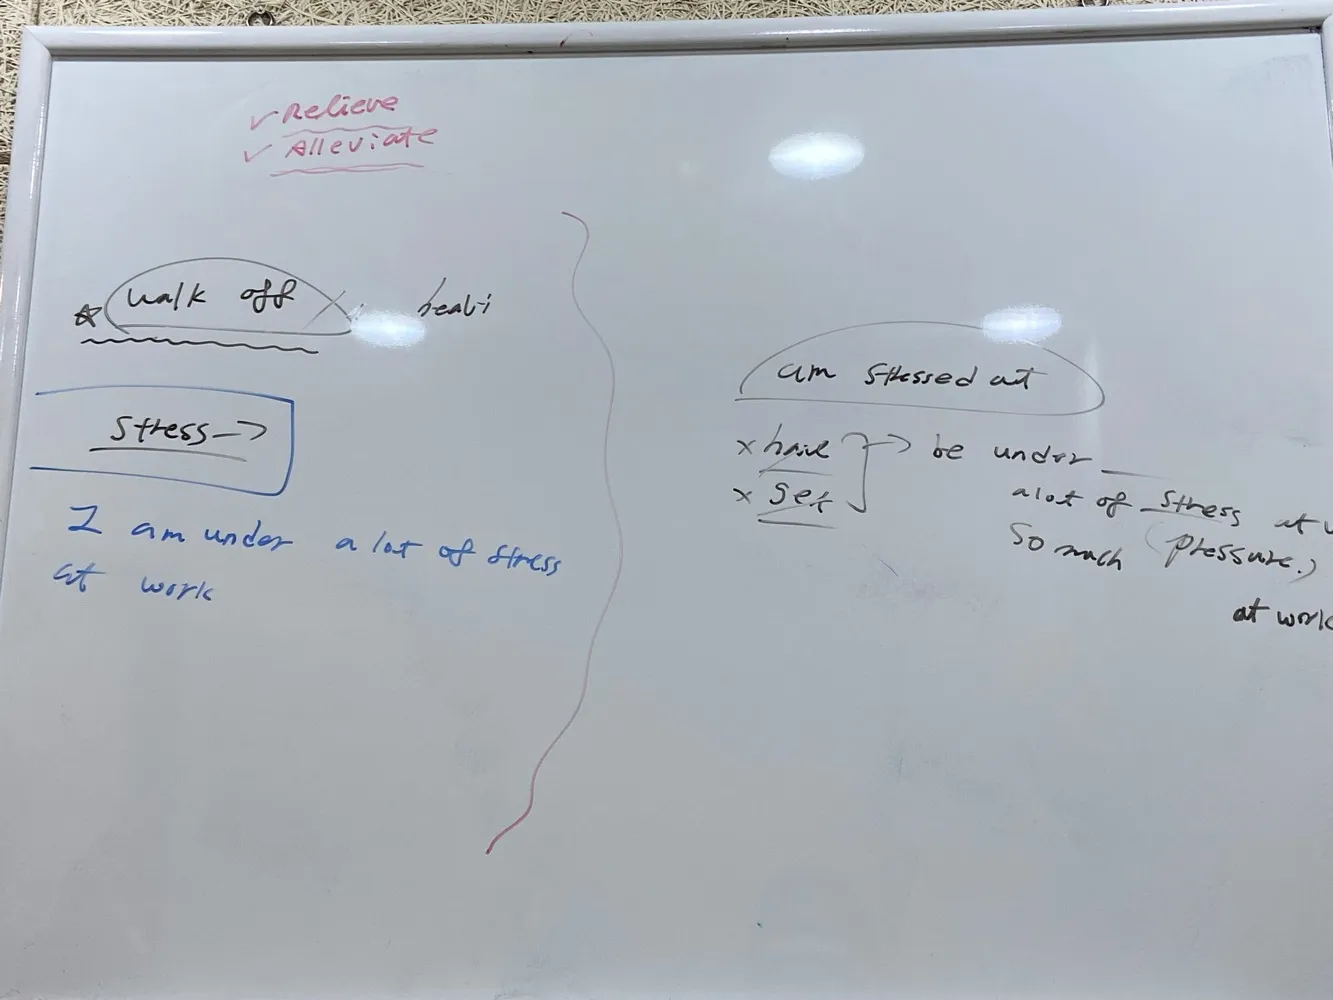 ✓ Relieve
✓ Alleviate
☆ walk off
Stress →
I am under a lot of stress
at work
am stressed out
x have → be under
x get
a lot of stress at
so much (pressure.)
at work